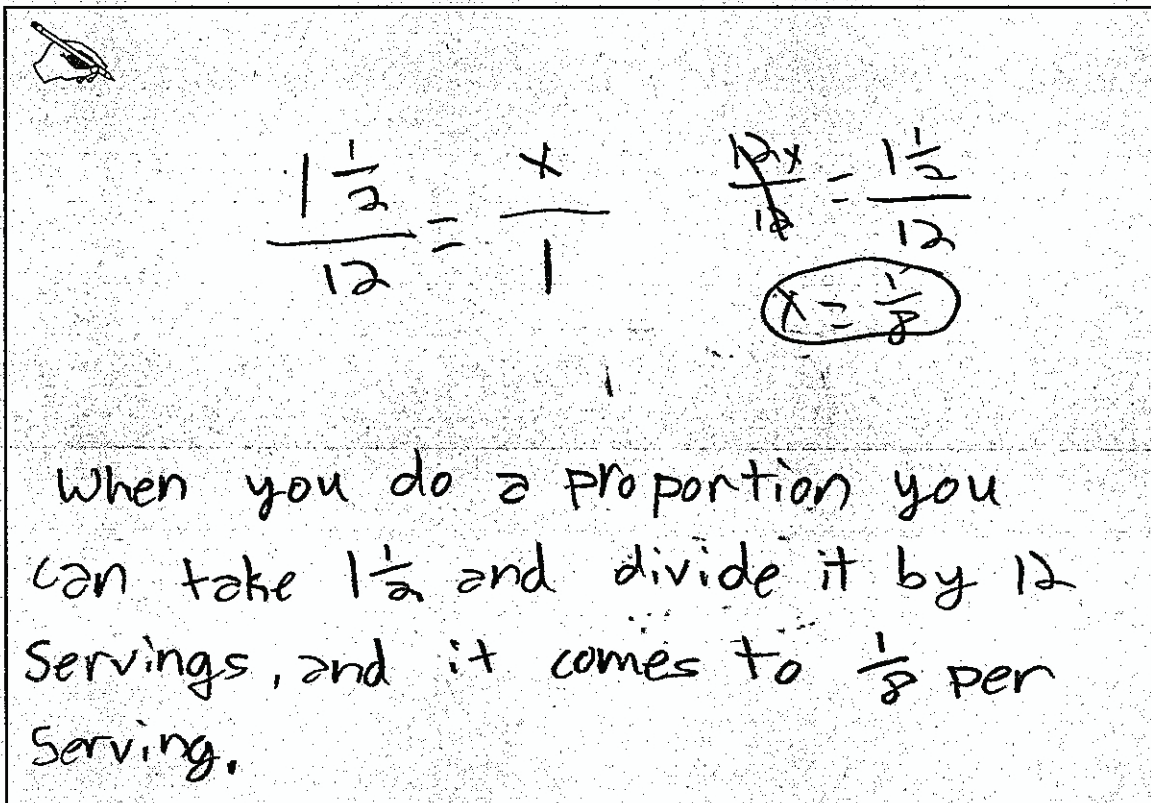 1 1/2 / 12 = x / 1
12x / 12 = 1 1/2 / 12
x = 1/8
When you do a proportion you
can take 1 1/2 and divide it by 12
Servings, and it comes to 1/8 per
Serving.